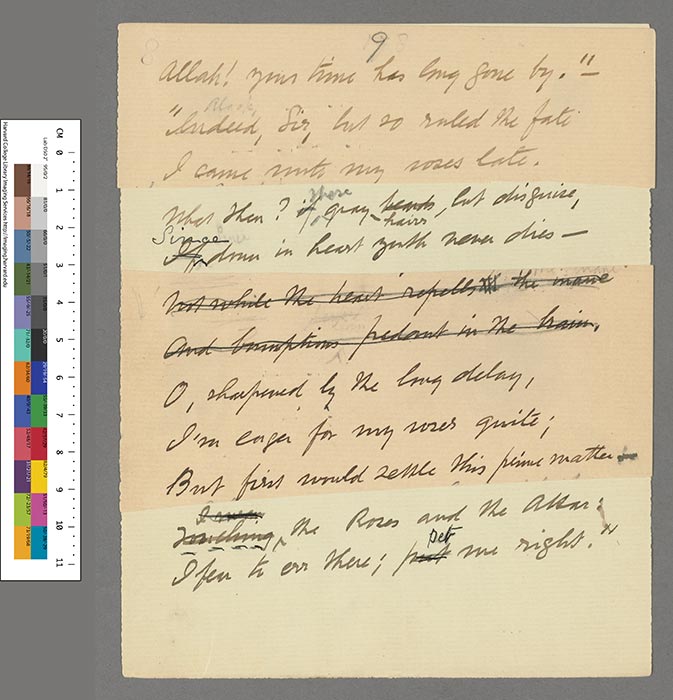 9
Allah! your time has long gone by."—
"Indeed, Sir, but so ruled the fate
I came with my roses late.
those
What then? if gray heads, but disguise,
hairs
Since
If down in heart youth never dies—
Not while the heart repells the mane
And bumptious pedant in the brain.
O, sharpened by the long delay,
I'm eager for my roses quite;
But first would settle this prime matter—
I mean
Touching, the Roses and the Attar:
Set
I fear to err there; put me right."
CM 0 1 2 3 4 5 6 7 8 9 10 11
Harvard College Library Imaging Services